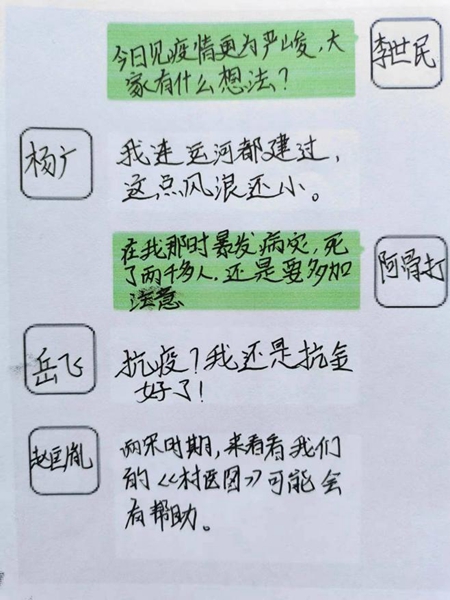 今日见疫情更为严峻,大
家有什么想法?
李世民
杨广
我连运河都建过,
这点风浪还小。
在我那时暴发病灾,死
了两千多人.还是要多加
注意
阿骨打
岳飞
抗疫?我还是抗金
好了!
赵匡胤
两宋时期,来看看我们
的《村医图》可能会
有帮助。